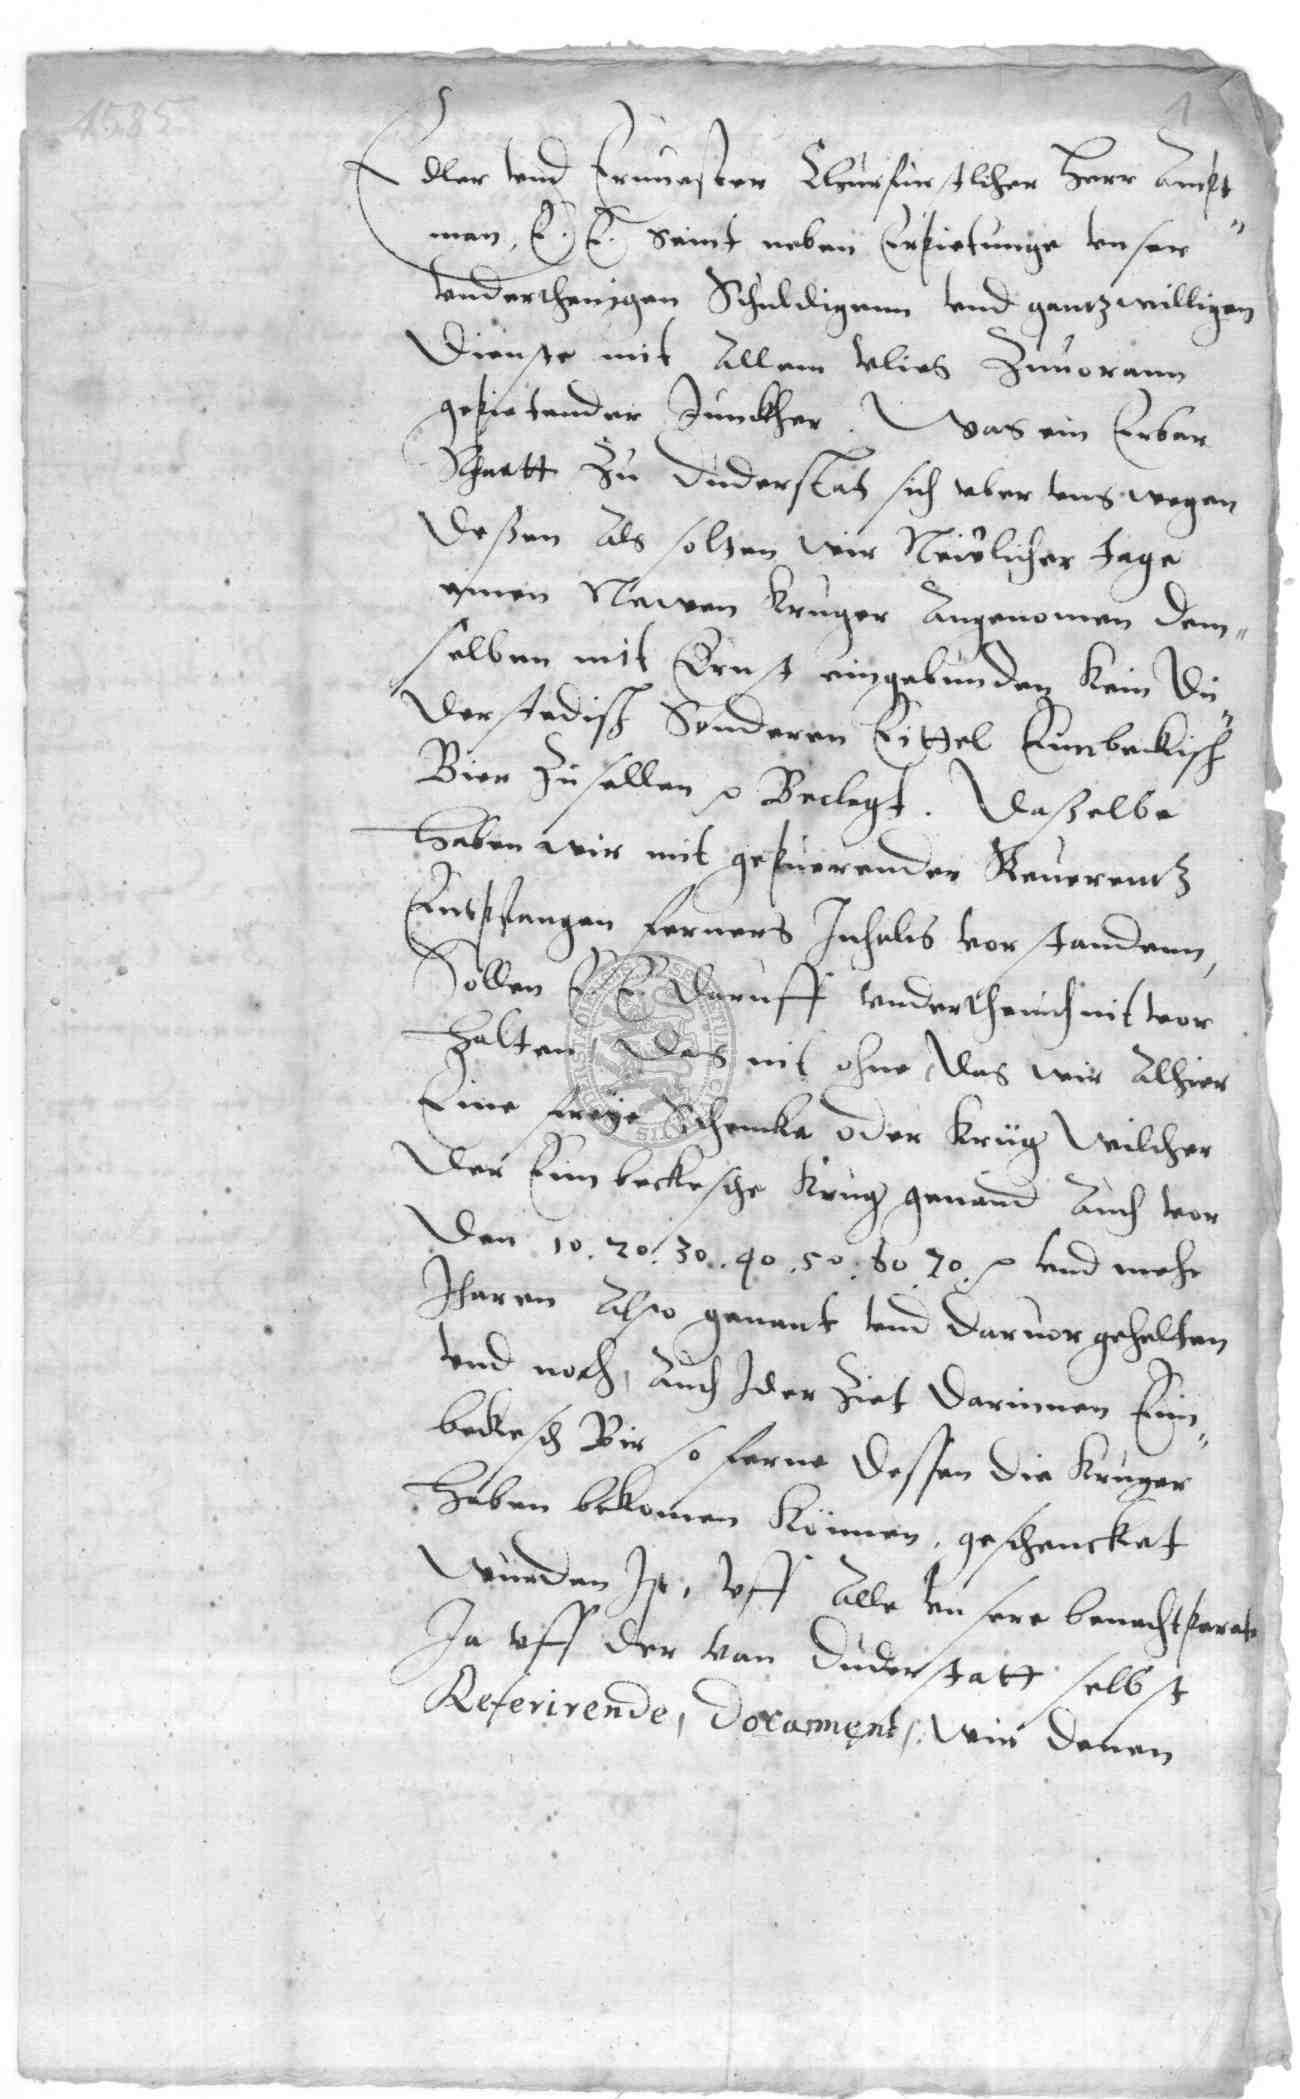 1585
1
Edler vnd Ernuester Churfurstlicher Herr Ampt„
man, E. E. seint neben Erpietunge vnser
vnderthenigen Schuldigenn vnd gantzwilligen
Dienste mit Allem vlies Zuuorann
gepietender Junckher. Was ein Erbar
Rhaett Zu Duderstat sich vber vns wegen
deßen Als solten wir Neulicher tage
einen Newen Kruger Angenomen dem„
selben mit Ernst eingebunden kein Du„
derstedisch Sonderen Eittel Eimbeckisch
Bier Zu sellen Beclegt. Daßelbe
haben wir mit gepuerender Reuerentz
Entpfangen ferners Inhalts vorstandenn,
Sollen E. E. daruff vnderthenich nit vor
halten, Das nit ohne, Das wir Alhier
Eine freye Schencke oder Krug Wilcher
der Eimbeckesche Krug genand Auch vor
den 10. 20. 30. 40. 50. 60. 70. vnd mehr
Jharen Also genant vnd daruor gehalten
vnd noch, Auch Jder Ziet darinnen Eim„
beckesch Bir so ferne dessen die Kruger
haben bekomen Können, geschencket
wurden Ist, Vff Alle vnsere benachtparte
Ja vff der van Duderstatt selbst
Referirende, Document, wir denen